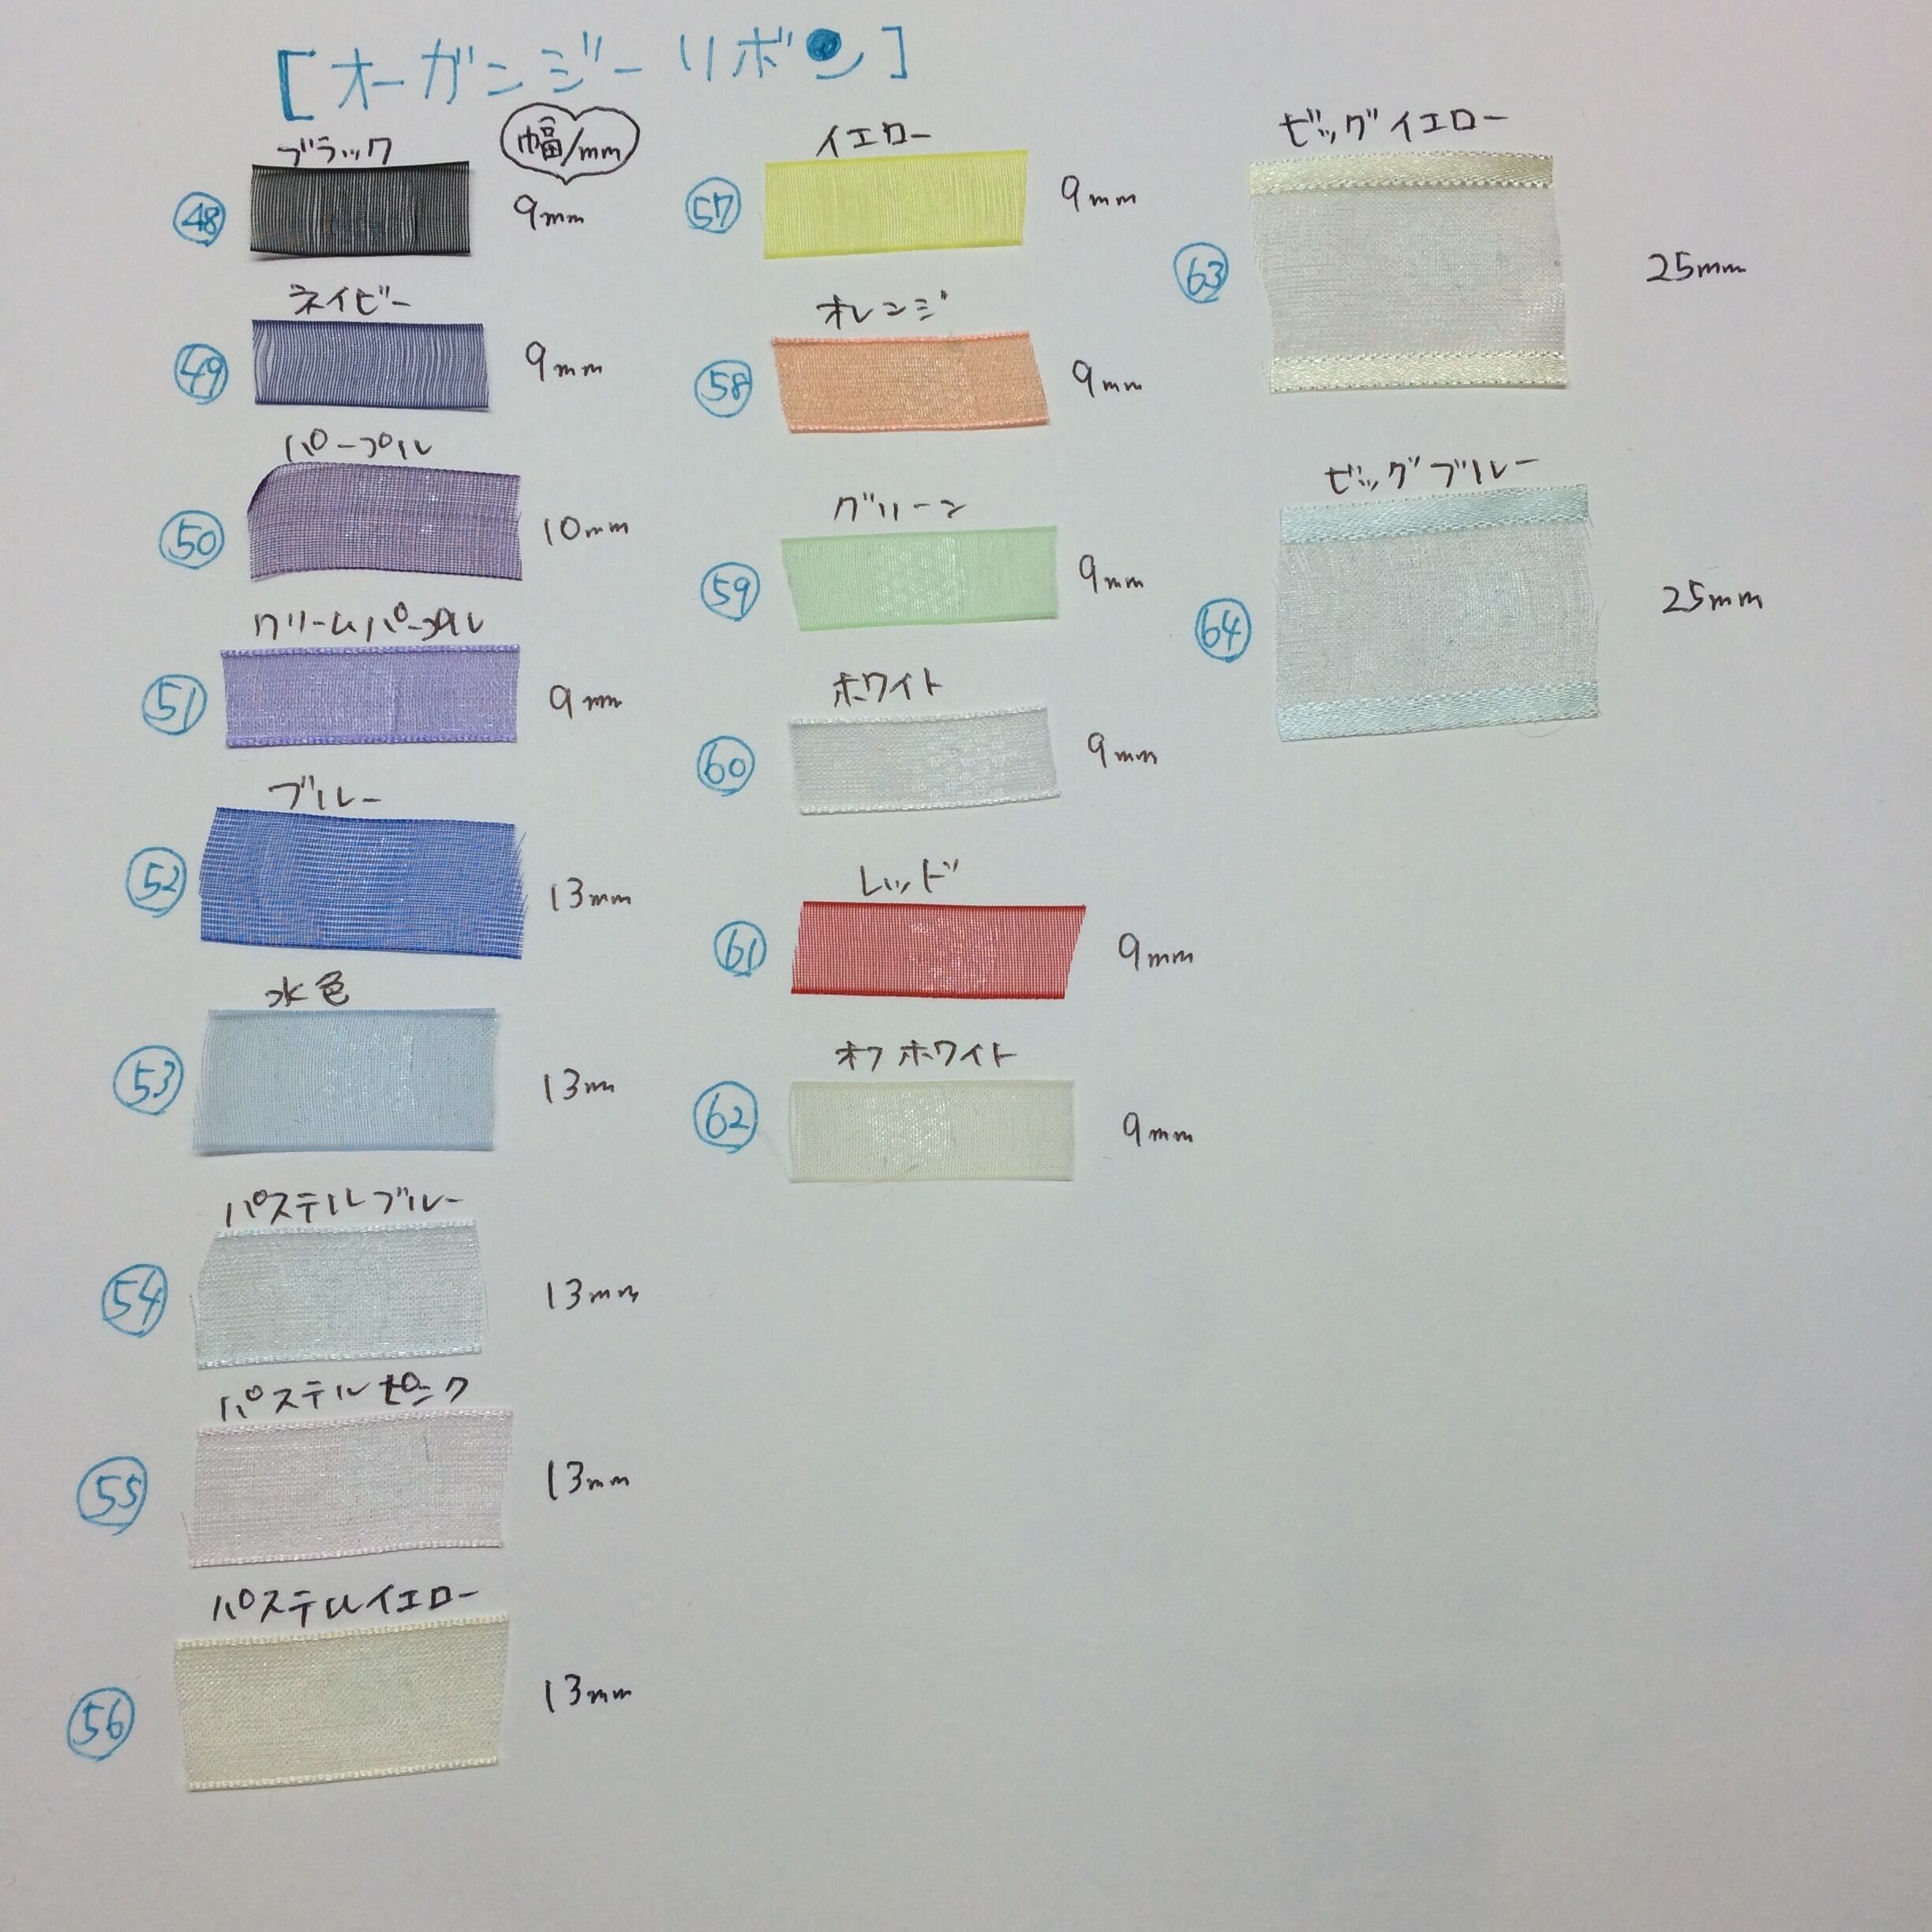 [オーガンジーリボン]
幅/mm
ブラック
48 9mm
ネイビー
49 9mm
パープル
50 10mm
クリームパープル
51 9mm
ブルー
52 13mm
水色
53 13mm
パステルブルー
54 13mm
パステルピンク
55 13mm
パステルイエロー
56 13mm
イエロー
57 9mm
オレンジ
58 9mm
グリーン
59 9mm
ホワイト
60 9mm
レッド
61 9mm
オフホワイト
62 9mm
ビッグイエロー
63 25mm
ビッグブルー
64 25mm